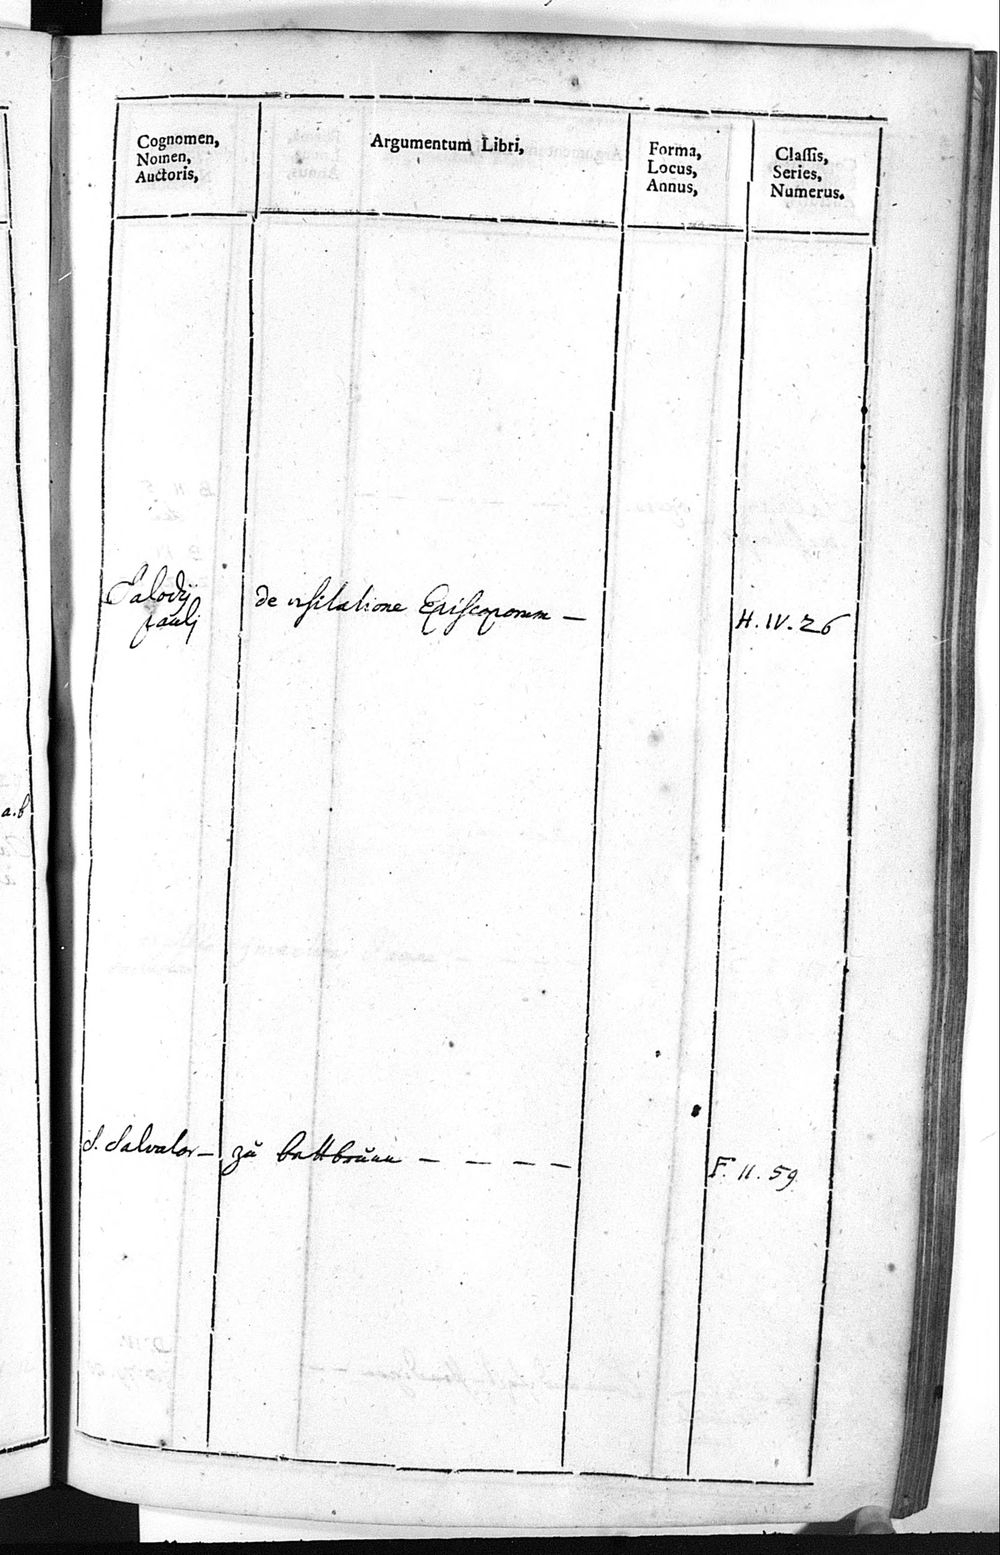 Cognomen,
Nomen,
Auctoris,
Argumentum Libri,
Forma,
Locus,
Annus,
Classis,
Series,
Numerus.
a.b
Salodij de visitatione Episcoporum — H. IV. 26
pauli
S. Salvator – zŭ bettbrŭnn – – – – F. II. 59